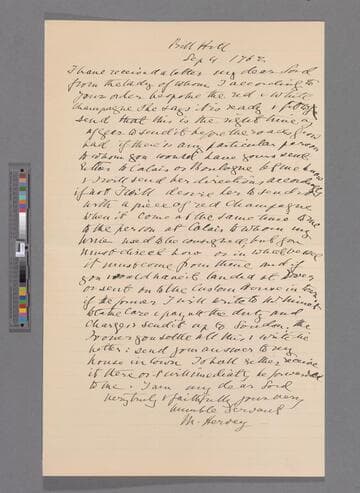 Bill Hill
Sep 9 1762.
I have received a letter my dear Lord
from the lady of whom I according to
your order bespoke the red & white
Champagne She says it is ready & fit to
send that this is the right time or
offers to send it before the roads grow
bad if there is any particular person
to whom you would have yours sent
either to Calais or Boulogne to give
& I will send her directions accordingly
if not I will desire her to send it
with a piece of red Champagne
when it come at the same time to me
to the person at Calais to whom my
wine used to be consigned, but you
must direct how or in what
it must come from thence and if
you would have it landed at Dover
or sent on to the Custom House in town
if the former I will write to Mr Minet
to take care & pay the duty and
Charges & send it up to London. The
sooner you settle all this & write the
better: send your answer to my
house in town I shall either receive
it there or it will immediately be forwarded
to me. I am my dear Lord
very truly & faithfully your very
humble Servant
M. Hervey